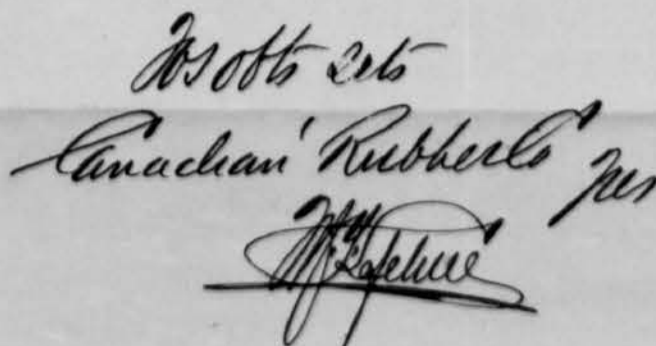 Yrs obts svts
Canadian Rubber Co
per